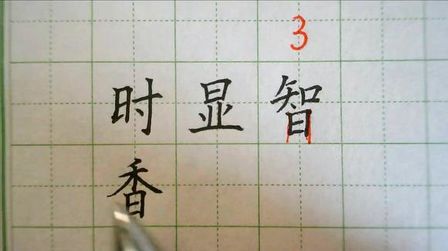 3
时显智
香